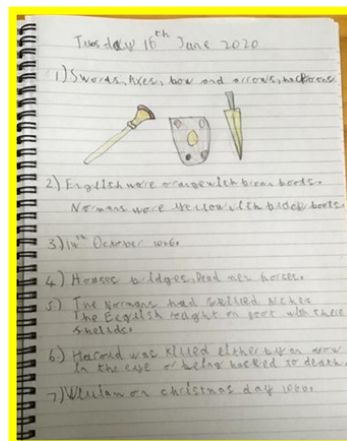 Tuesday 16th June 2020
1) Swords, Axes, bow and arrows,
2) English wore orange with brown boots.
Normans wore yellow with black boots.
3) 14th October 1066.
4) Houses bridges, Dead men horses.
5) The Normans had skilled archer
The English fought on foot with there
sheilds.
6) Harold was killed either by an arrow
in the eye or being hacked to death.
7) William on christmas day 1066.